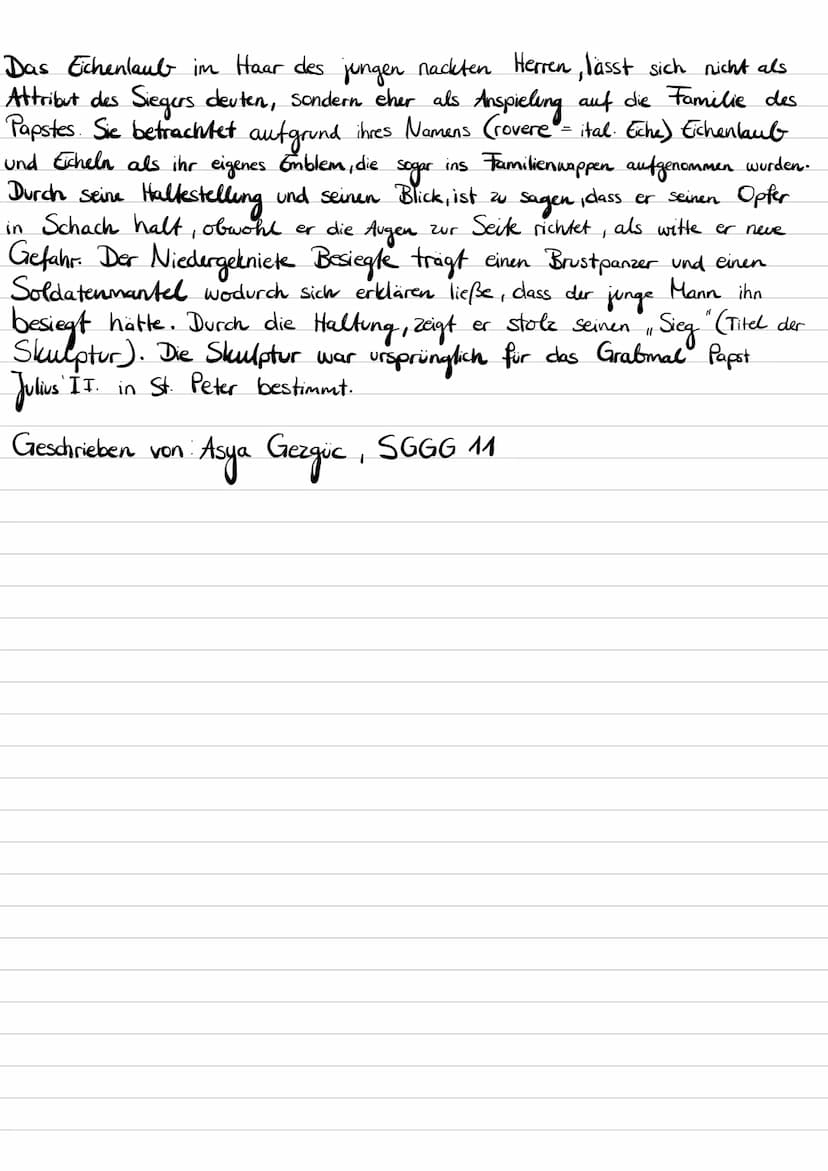 Das Eichenlaub im Haar des jungen nackten Herren, lässt sich nicht als
Attribut des Siegers deuten, sondern eher als Anspielung auf die Familie des
Papstes. Sie betrachtet aufgrund ihres Namens (rovere = ital. Eiche) Eichenlaub
und Eicheln als ihr eigenes Emblem, die sogar ins Familienwappen aufgenommen wurden.
Durch seine Haltestellung und seinen Blick, ist zu sagen, dass er seinen Opfer
in Schach hält, obwohl er die Augen zur Seite richtet, als witte er neue
Gefahr. Der Niedergekniete Besiegte trägt einen Brustpanzer und einen
Soldatenmantel wodurch sich erklären ließe, dass der junge Mann ihn
besiegt hätte. Durch die Haltung, zeigt er stolz seinen „Sieg" (Titel der
Skulptur). Die Skulptur war ursprünglich für das Grabmal Papst
Julius II. in St. Peter bestimmt.
Geschrieben von: Asya Gezgüc, SGGG 11